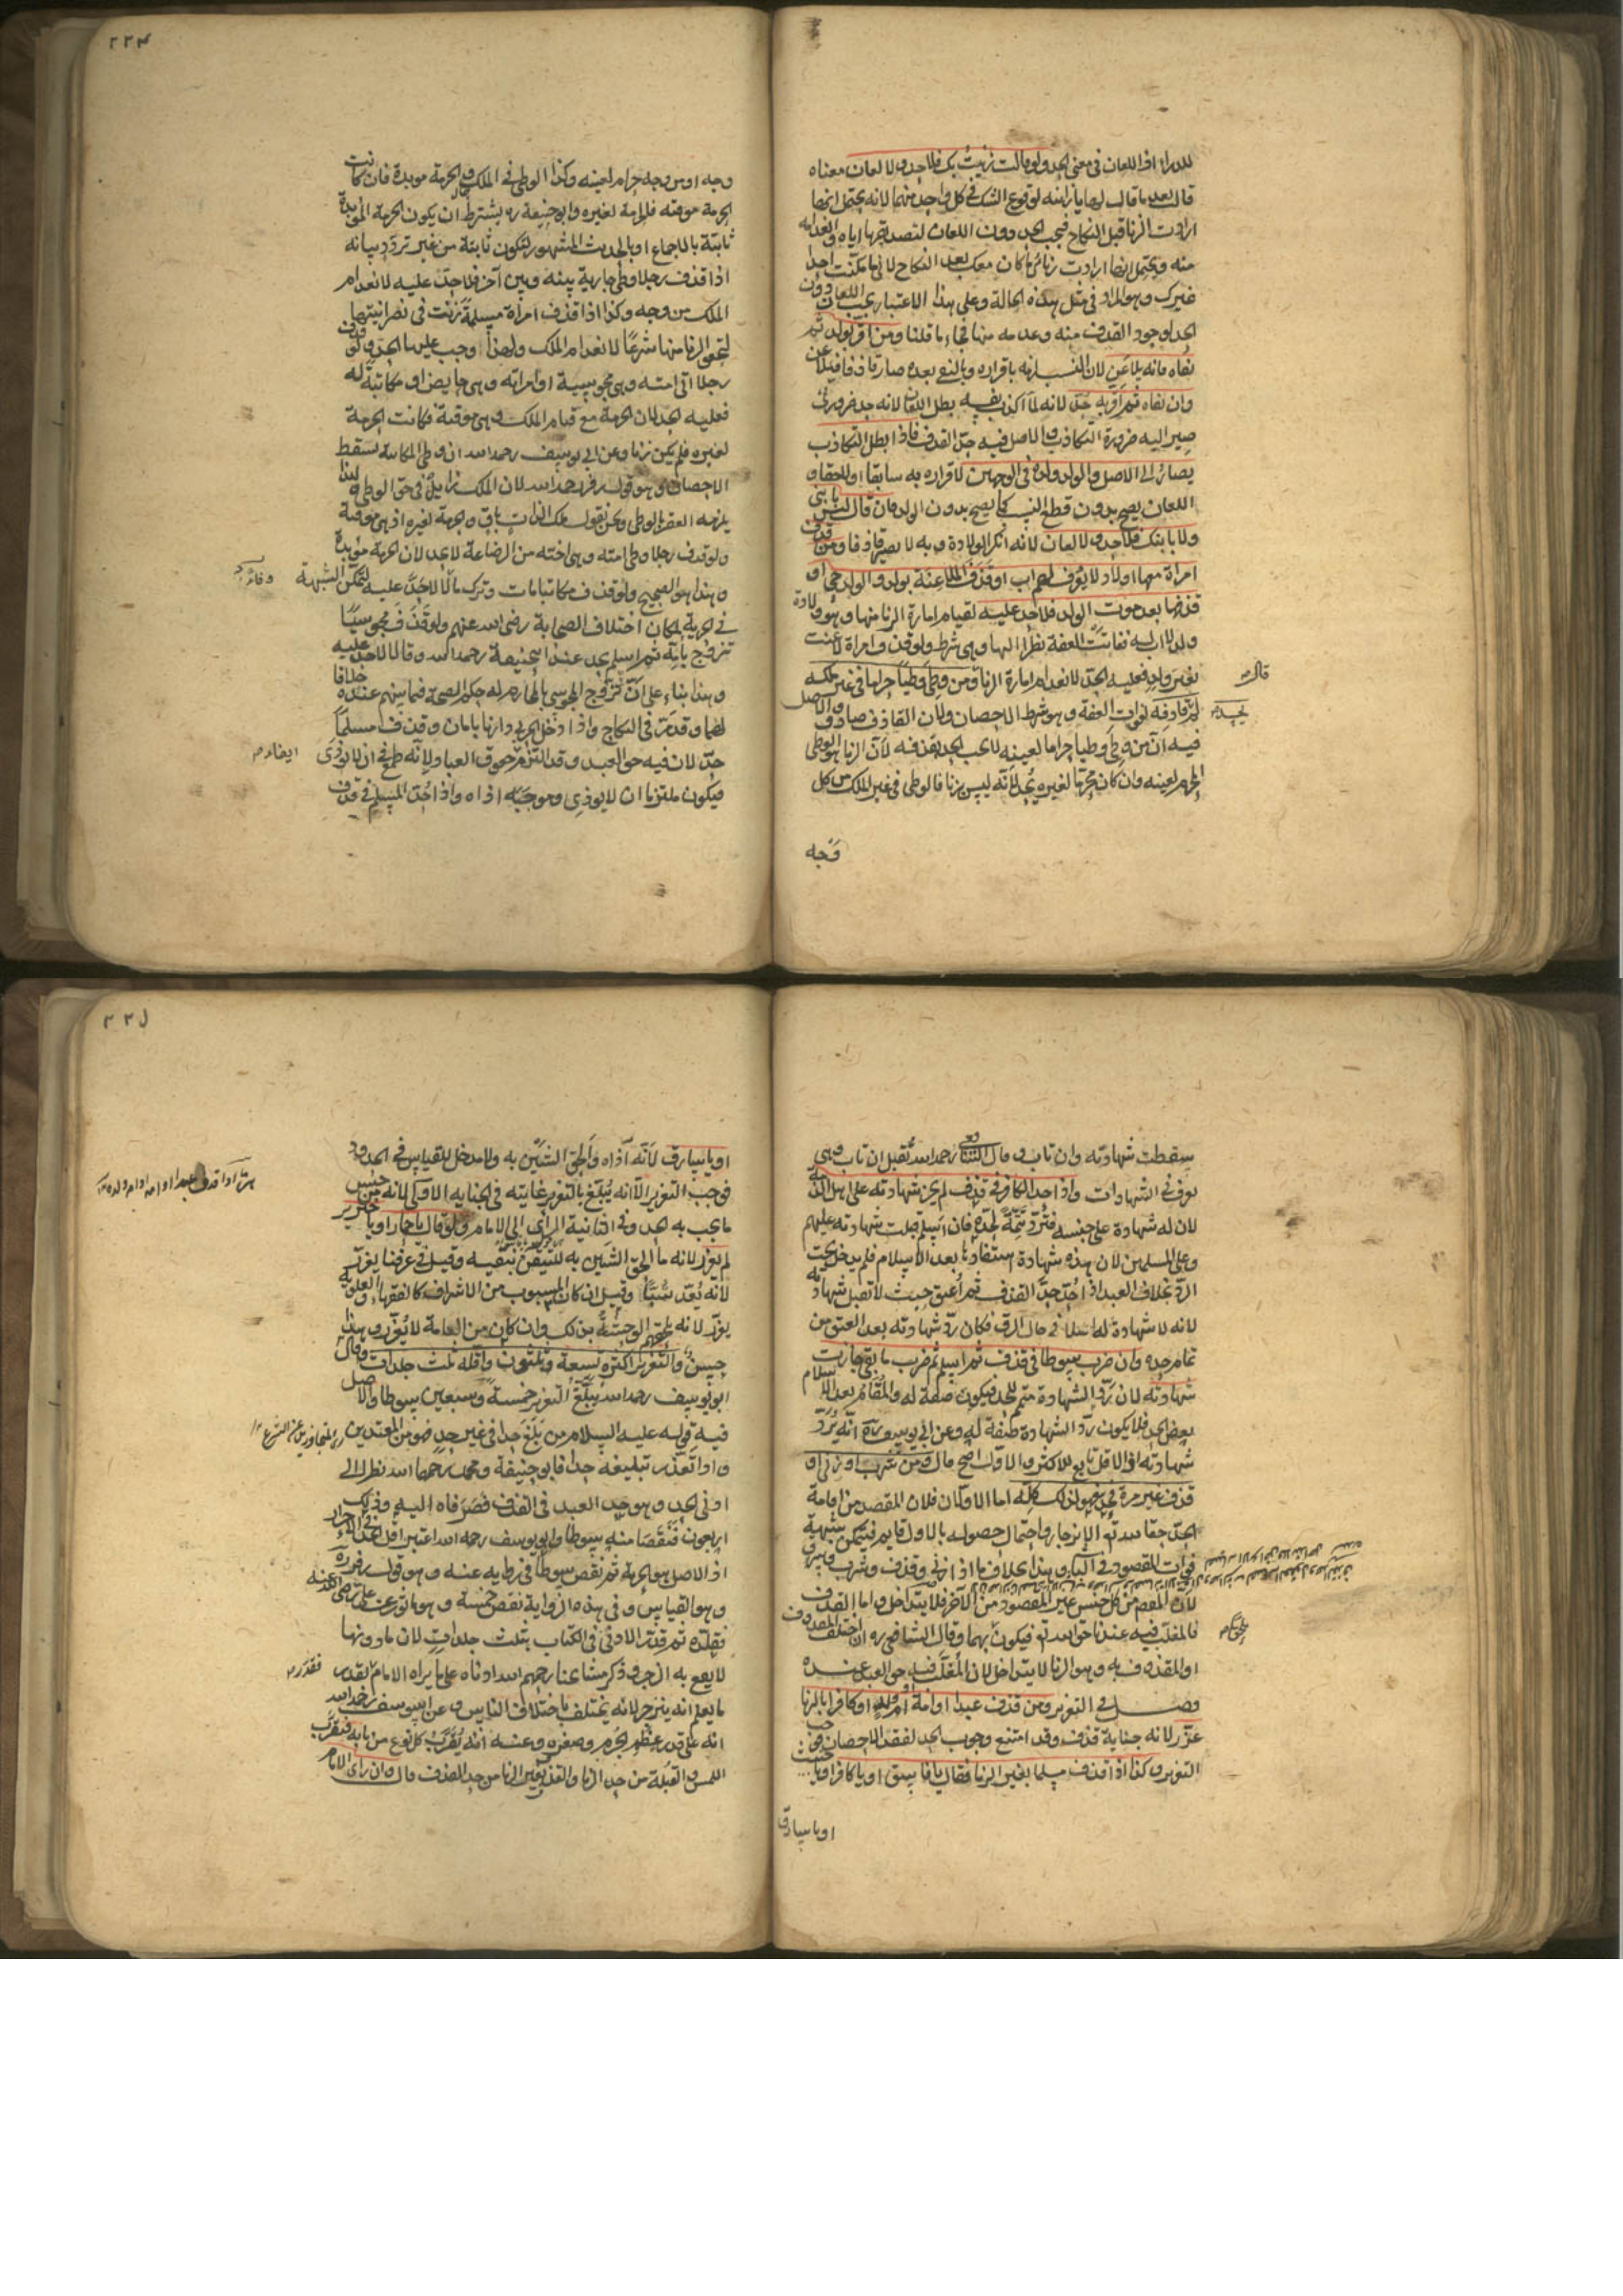 للدراء اذ اللعان فى معنى الحد ولو قالت زنيت بك فلا حد ولا لعان معناه
قالت بعد ما قال لها يا زانية لوقوع الشك فى كل واحد منهما لانه يحتمل انها
ارادت الزنا قبل النكاح فيجب الحد دون اللعان لتصديقها اياه وانعدامه
منه ويحتمل انها ارادت زنائى ما كان معك بعد النكاح لانى ما مكنت احدا
غيرك وهو المراد فى مثل هذه الحالة وعلى هذا الاعتبار يجب اللعان دون
الحد لوجود القذف منه وعدمه منها فجاء ما قلنا ومن اقر بولد ثم
نفاه فانه يلاعن لان النسب لزمه باقراره وبالنفى بعده صار قاذفا فيلاعن
وان نفاه ثم اقر به حد لانه لما اكذب نفسه بطل اللعان لانه حد ضرورى
صير اليه ضرورة التكاذب والاصل فيه حد القذف فاذا بطل التكاذب
يصار الى الاصل والولد ولده فى الوجهين لاقراره به سابقا او لاحقا و
اللعان يصح بدون قطع النسب كما يصح بدون الولد فان قال ليس بابنى
ولا بابنك فلا حد ولا لعان لانه انكر الولادة وبه لا يصير قاذفا ومن قذف
امراة معها اولاد لا يعرف لهم اب او قذف الملاعنة بولد والولد حى او
قذفها بعد موت الولد فلا حد عليه لقيام امارة الزنا منها وهو ولادة
ولد لا اب له ففاتت العفة نظرا اليها وهى شرط ولو قذف امراة لاعنت
بغير ولد فعليه الحد لانعدام امارة الزنا ومن وطى وطيا حراما فى غير ملكه
قال
لم يحد قاذفه لفوات العفة وهو شرط الاحصان ولان القاذف صادق والاصل
فيه ان من وطى وطيا حراما لعينه لا يجب الحد بقذفه لان الزنا هو الوطى
المحرم لعينه وان كان محرما لغيره يحد لانه ليس بزنا فالوطى فى غير الملك من كل
وجه
٢٢٤
وجه او من وجه حرام لعينه وكذا الوطى فى الملك والحرمة موبدة فان كانت
الحرمة موقته فالحرمة لغيره وابو حنيفة ره يشترط ان يكون الحرمة المؤبدة
ثابتة بالاجماع او بالحديث المشهور لتكون ثابتة من غير تردد بيانه
اذا قذف رجلا وطى جارية بينه وبين آخر فلا حد عليه لانعدام
الملك من وجه وكذا اذا قذف امراة مسلمة زنت فى نصرانيتها
لتحقق الزنا منها شرعا لانعدام الملك ولهذا وجب عليها الحد ولو قذف
رجلا اتى امته وهى مجوسية او امراته وهى حايض او مكاتبة له
فعليه الحد لان الحرمة مع قيام الملك وهى موقتة فكانت الحرمة
لغيره فلم يكن زنا وعن ابى يوسف رحمه الله ان وطى المكاتبة يسقط
الاحصان وهو قول زفر رحمه الله لان الملك زايل فى حق الوطى ولهذا
يلزمه العقر بالوطى ونحن نقول ملك الذات باق والحرمة لغيره اذ هى موقتة
ولو قذف رجلا وطى امته وهى اخته من الرضاعة لا يحد لان الحرمة مؤبدة
وهذا هو الصحيح ولو قذف مكاتبا مات وترك مالا لا حد عليه لتمكن الشبهة
فى الحرية لمكان اختلاف الصحابة رضى الله عنهم ولو قذف مجوسيا
تزوج بامه ثم اسلم يحد عند ابى حنيفة رحمه الله وقالا لا حد عليه
وهذا بناء على ان تزوج المجوسى بالمحارم له حكم الصحة فيما بينهم عنده خلافا
لهما وقد مر فى النكاح واذا دخل الحربى دارنا بامان وقذف مسلما
حد لان فيه حق العبد وقد التزم حقوق العباد ولانه طمع فى ان لا يوذى
ايفاء
فيكون ملتزما ان لا يوذى وموجب اذاه واذا حد المسلم فى قذف
سقطت شهادته وان تاب وقال الشافعى رحمه الله تقبل ان تاب وهى
يعرف فى الشهادات واذا حد الكافر فى قذف لم يجز شهادته على اهل الذمة
لان له شهادة على جنسه فترد تتمة لحده فان اسلم قبلت شهادته عليهم
وعلى المسلمين لان هذه شهادة استفادها بعد الاسلام فلم يدخل تحت
الرد بخلاف العبد اذا حد حد القذف ثم اعتق حيث لا تقبل شهادته
لانه لا شهادة له اصلا فى حال الرق فكان رد شهادته بعد العتق من
تمام حده وان ضرب سوطا فى قذف ثم اسلم ثم ضرب ما بقى جازت
شهادته لان رد الشهادة متمم للحد فيكون صفة له والمقام بعد الاسلام
بعض الحد فلا يكون رد الشهادة صفة له وعن ابى يوسف ره انه يرد
شهادته اذ الاقل تابع للاكثر والاول اصح قال ومن شرب او زنى او
قذف غير مرة فحد فهو لذلك كله اما الاولان فلان المقصد من اقامة
الحد حقا لله ته الانزجار واحتمال حصوله بالاول قايم فيتمكن شبهة
فوات المقصود فى الثانى وهذا بخلاف ما اذا زنى وقذف وشرب وسرق
لان المقصود من كل جنس غير المقصود من الآخر فلا يتداخل واما القذف
فالمغلب فيه عندنا حق الله ته فيكون بهما وقال الشافعى ره ان اختلف المقذوف
او المقذوف به وهو الزنا لا يتداخل لان المغلب فيه حق العبد عنده
فصل فى التعزير ومن قذف عبدا او امة او ام ولد او كافرا بالزنا
عزر لانه جناية قذف وقد امتنع وجوب الحد لفقد الاحصان فوجب
التعزير وكذا اذا قذف مسلما بغير الزنا فقال يا فاسق او يا كافر او يا خبيث
او يا سارق
او يا سارق لانه آذاه والحق الشين به ولا مدخل للقياس فى الحدود
فوجب التعزير الا انه يبلغ بالتعزير غايته فى الجناية الاولى لانه من جنس
ما يجب به الحد وفى الثانية الراى الى الامام ولو قال يا حمار او يا خنزير
لم يعزر لانه ما الحق الشين به للتيقن بنفيه وقيل فى عرفنا يعزر
لانه يعد سبا وقيل ان كان المسبوب من الاشراف كالفقهاء والعلوية
يعزر لانه يلحقهم الوحشة بذلك وان كان من العامة لا يعزر وهذا
حسن والتعزير اكثره تسعة وثلثون واقله ثلث جلدات وقال
ابو يوسف رحمه الله يبلغ التعزير خمسة وسبعين سوطا والاصل
فيه قوله عليه السلام من بلغ حدا فى غير حد فهو من المعتدين
واذا تعذر تبليغه حدا فابو حنيفة ومحمد رحمهما الله نظرا الى
ادنى الحد وهو حد العبد فى القذف فصرفاه اليه وذلك
اربعون فنقصا منه سوطا وابو يوسف رحمه الله اعتبر اقل الحد فى الاحرار
اذ الاصل هو الحرية ثم نقص سوطا فى رواية عنه وهو قول زفر ره
وهو القياس وفى هذه الرواية نقص خمسة وهو ماثور عن على رضى الله عنه
فقلده ثم قدر الادنى فى الكتاب بثلث جلدات لان ما دونها
لا يقع به الزجر وذكر مشايخنا رحمهم الله ادناه على ما يراه الامام
ما يعلم انه ينزجر لانه يختلف باختلاف الناس وعن ابى يوسف رحمه الله
انه على قدر عظم الجرم وصغره وعنه انه يقرب كل نوع من بابه فيقرب
اللمس والقبلة من حد الزنا والقذف بغير الزنا من حد القذف قال وان راى الامام